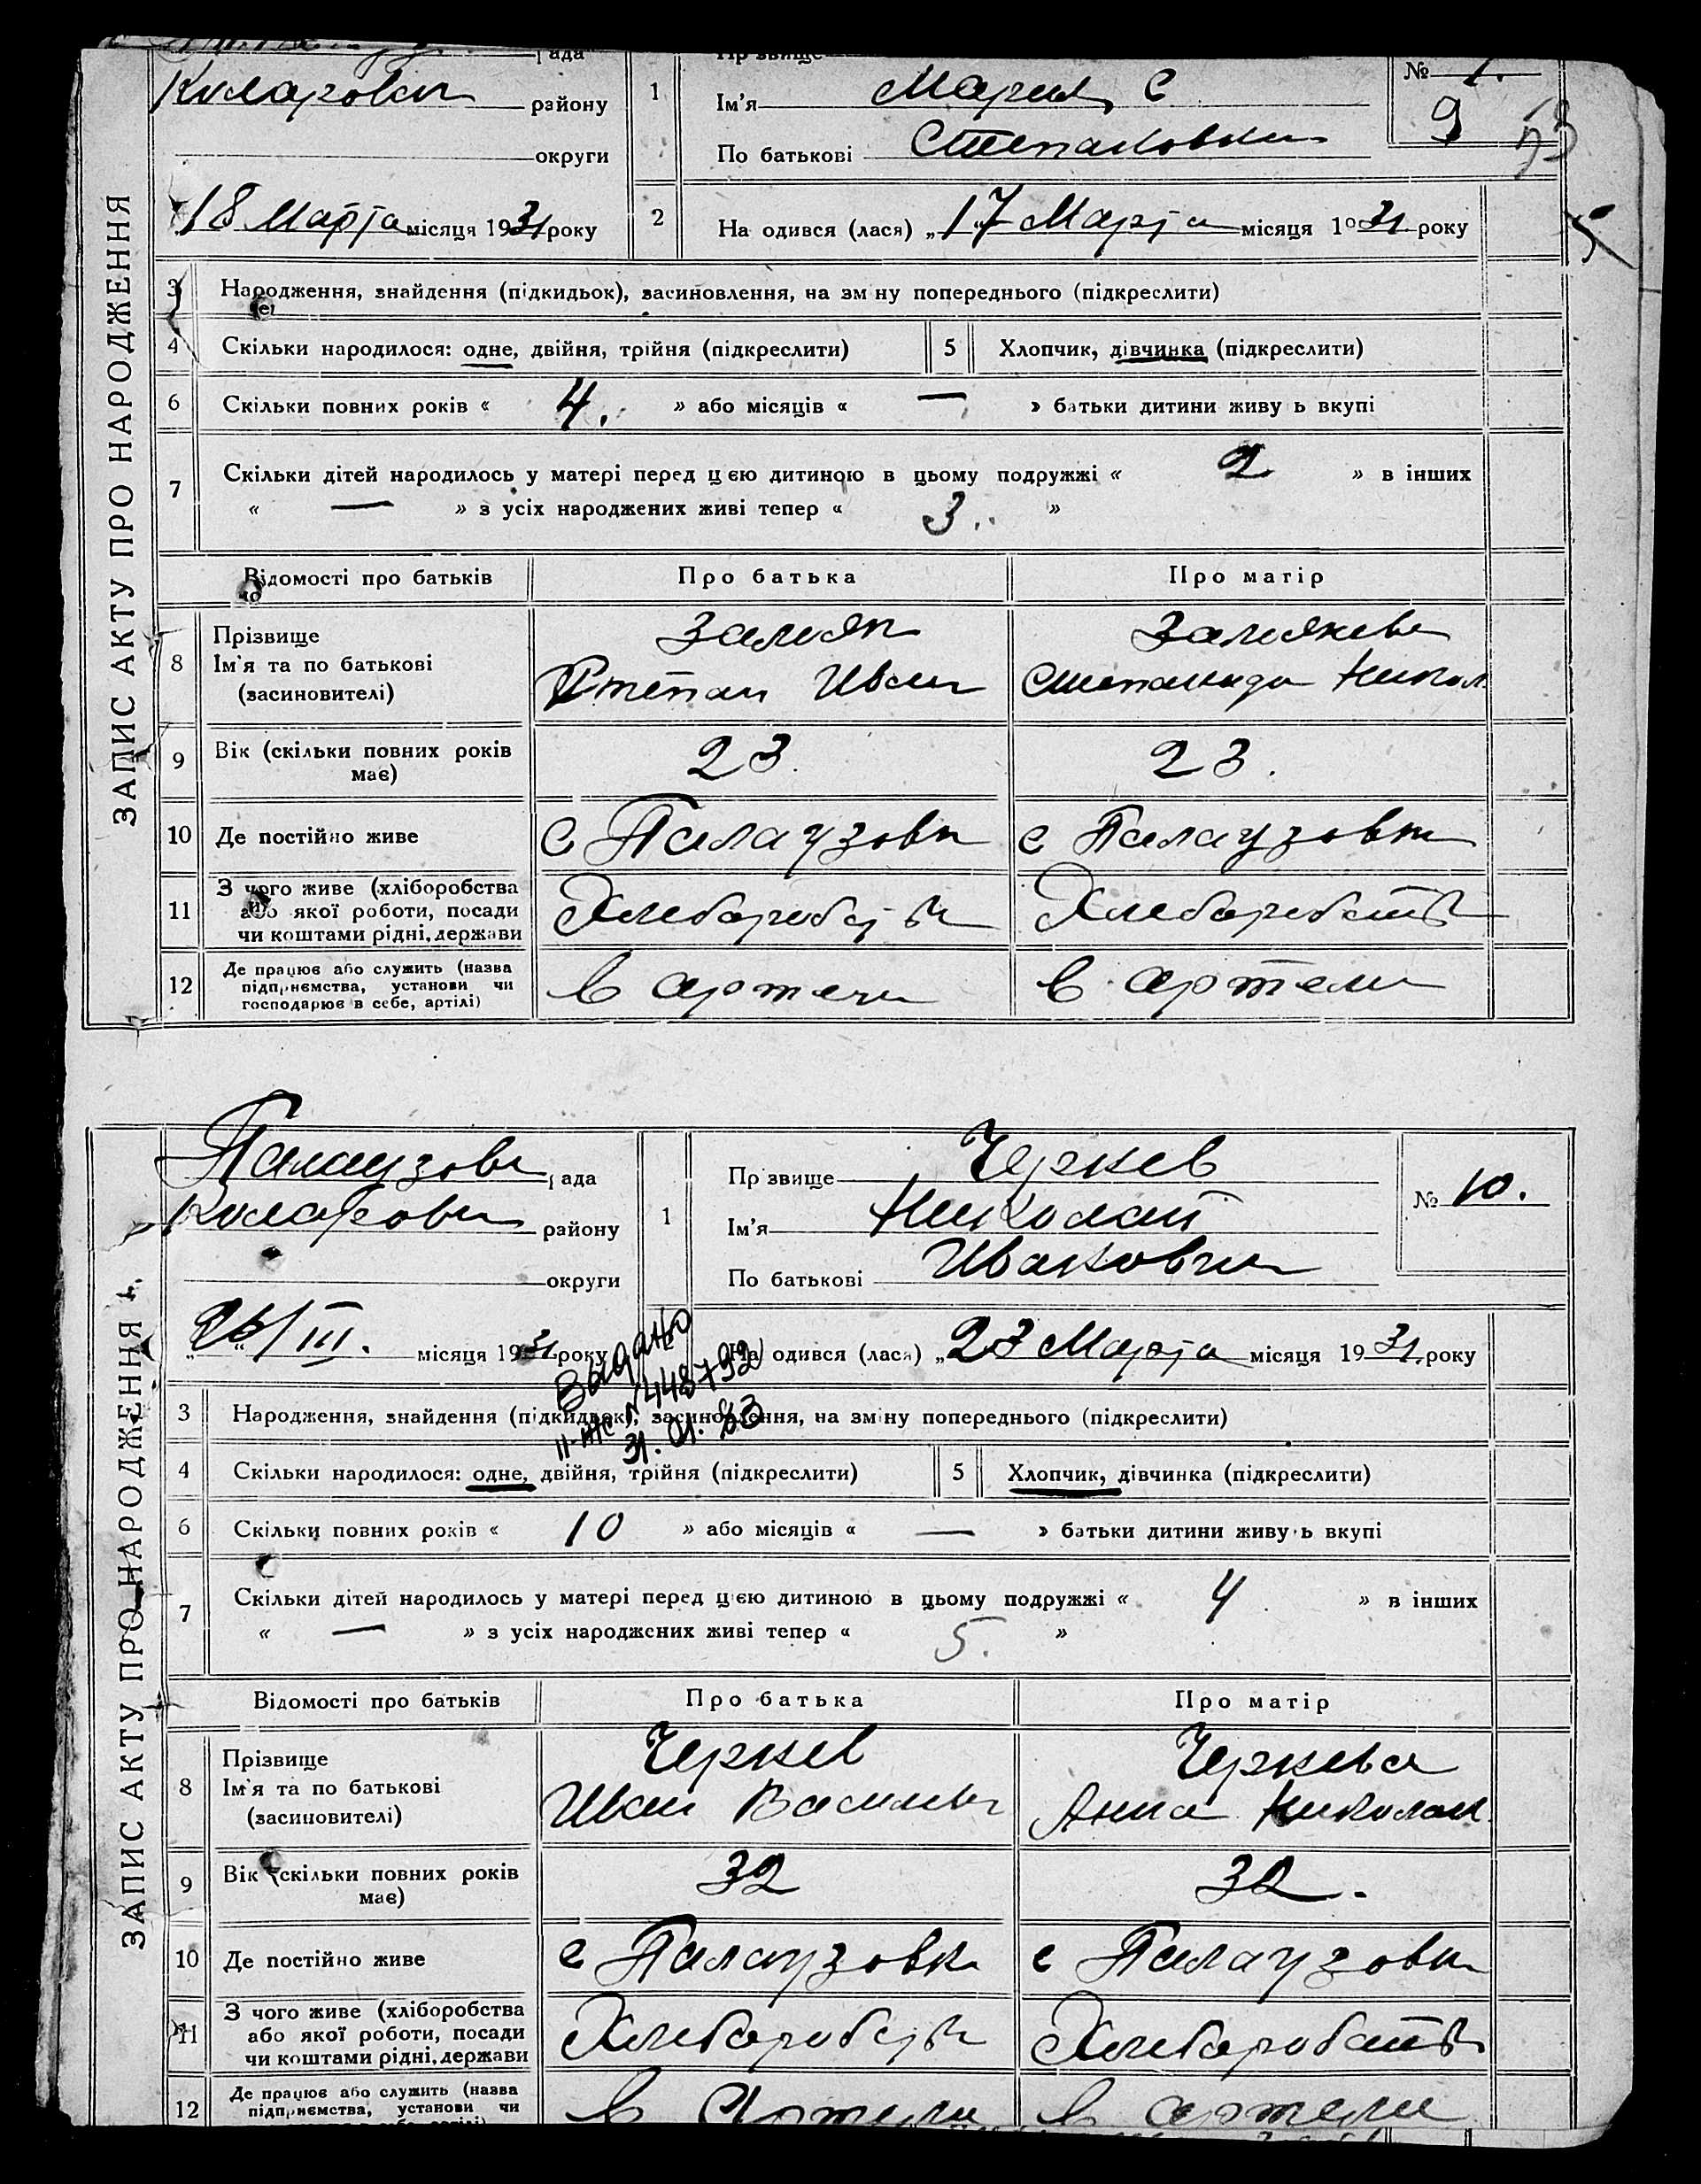 ЗАПИС АКТУ ПРО НАРОДЖЕННЯ
рада
Коларовск району
округи
18 Марта місяця 1931 року
1
Прізвище
Ім'я Мария С
По батькові Степановна
№
9
53
2 На одився (лася) „17 Марта місяця 1931 року
3 Народження, знайдення (підкидьок), засиновлення, на зміну попереднього (підкреслити)
4 Скільки народилося: одне, двійня, трійня (підкреслити) 5 Хлопчик, дівчинка (підкреслити)
6 Скільки повних років « 4. » або місяців « — » батьки дитини живуть вкупі
7 Скільки дітей народилось у матері перед цією дитиною в цьому подружжі « 2 » в інших
« — » з усіх народжених живі тепер « 3. »
Відомості про батьків Про батька Про матір
8 Прізвище
Ім'я та по батькові
(засиновителі)
Степан Иван
Степанида Никол
9 Вік (скільки повних років має) 23. 23.
10 Де постійно живе с Палаузовк с Палаузовк
11 З чого живе (хліборобства
або якої роботи, посади
чи коштами рідні, держави
Хлеборобств Хлеборобств
12 Де працює або служить (назва
підприємства, установи чи
господарює в себе, артілі)
в артели в артели
ЗАПИС АКТУ ПРО НАРОДЖЕННЯ
Палаузовк рада
Коларовск району
округи
26/III. місяця 1931 року
1
Прізвище Черкев
Ім'я Николай
По батькові Иванович
№ 10.
Выдано
II-ЖС №448792
31.01.83
2 На одився (лася) „23 Марта місяця 1931. року
3 Народження, знайдення (підкидьок), засиновлення, на зміну попереднього (підкреслити)
4 Скільки народилося: одне, двійня, трійня (підкреслити) 5 Хлопчик, дівчинка (підкреслити)
6 Скільки повних років « 10 » або місяців « — » батьки дитини живуть вкупі
7 Скільки дітей народилось у матері перед цією дитиною в цьому подружжі « 4 » в інших
« — » з усіх народжених живі тепер « 5. »
Відомості про батьків Про батька Про матір
8 Прізвище
Ім'я та по батькові
(засиновителі)
Черкев
Иван Васильев
Черкева
Анна Николаи
9 Вік (скільки повних років має) 32 32.
10 Де постійно живе с Палаузовк с Палаузовк
11 З чого живе (хліборобства
або якої роботи, посади
чи коштами рідні, держави
Хлеборобств Хлеборобств
12 Де працює або служить (назва
підприємства, установи чи
в Артели в артели